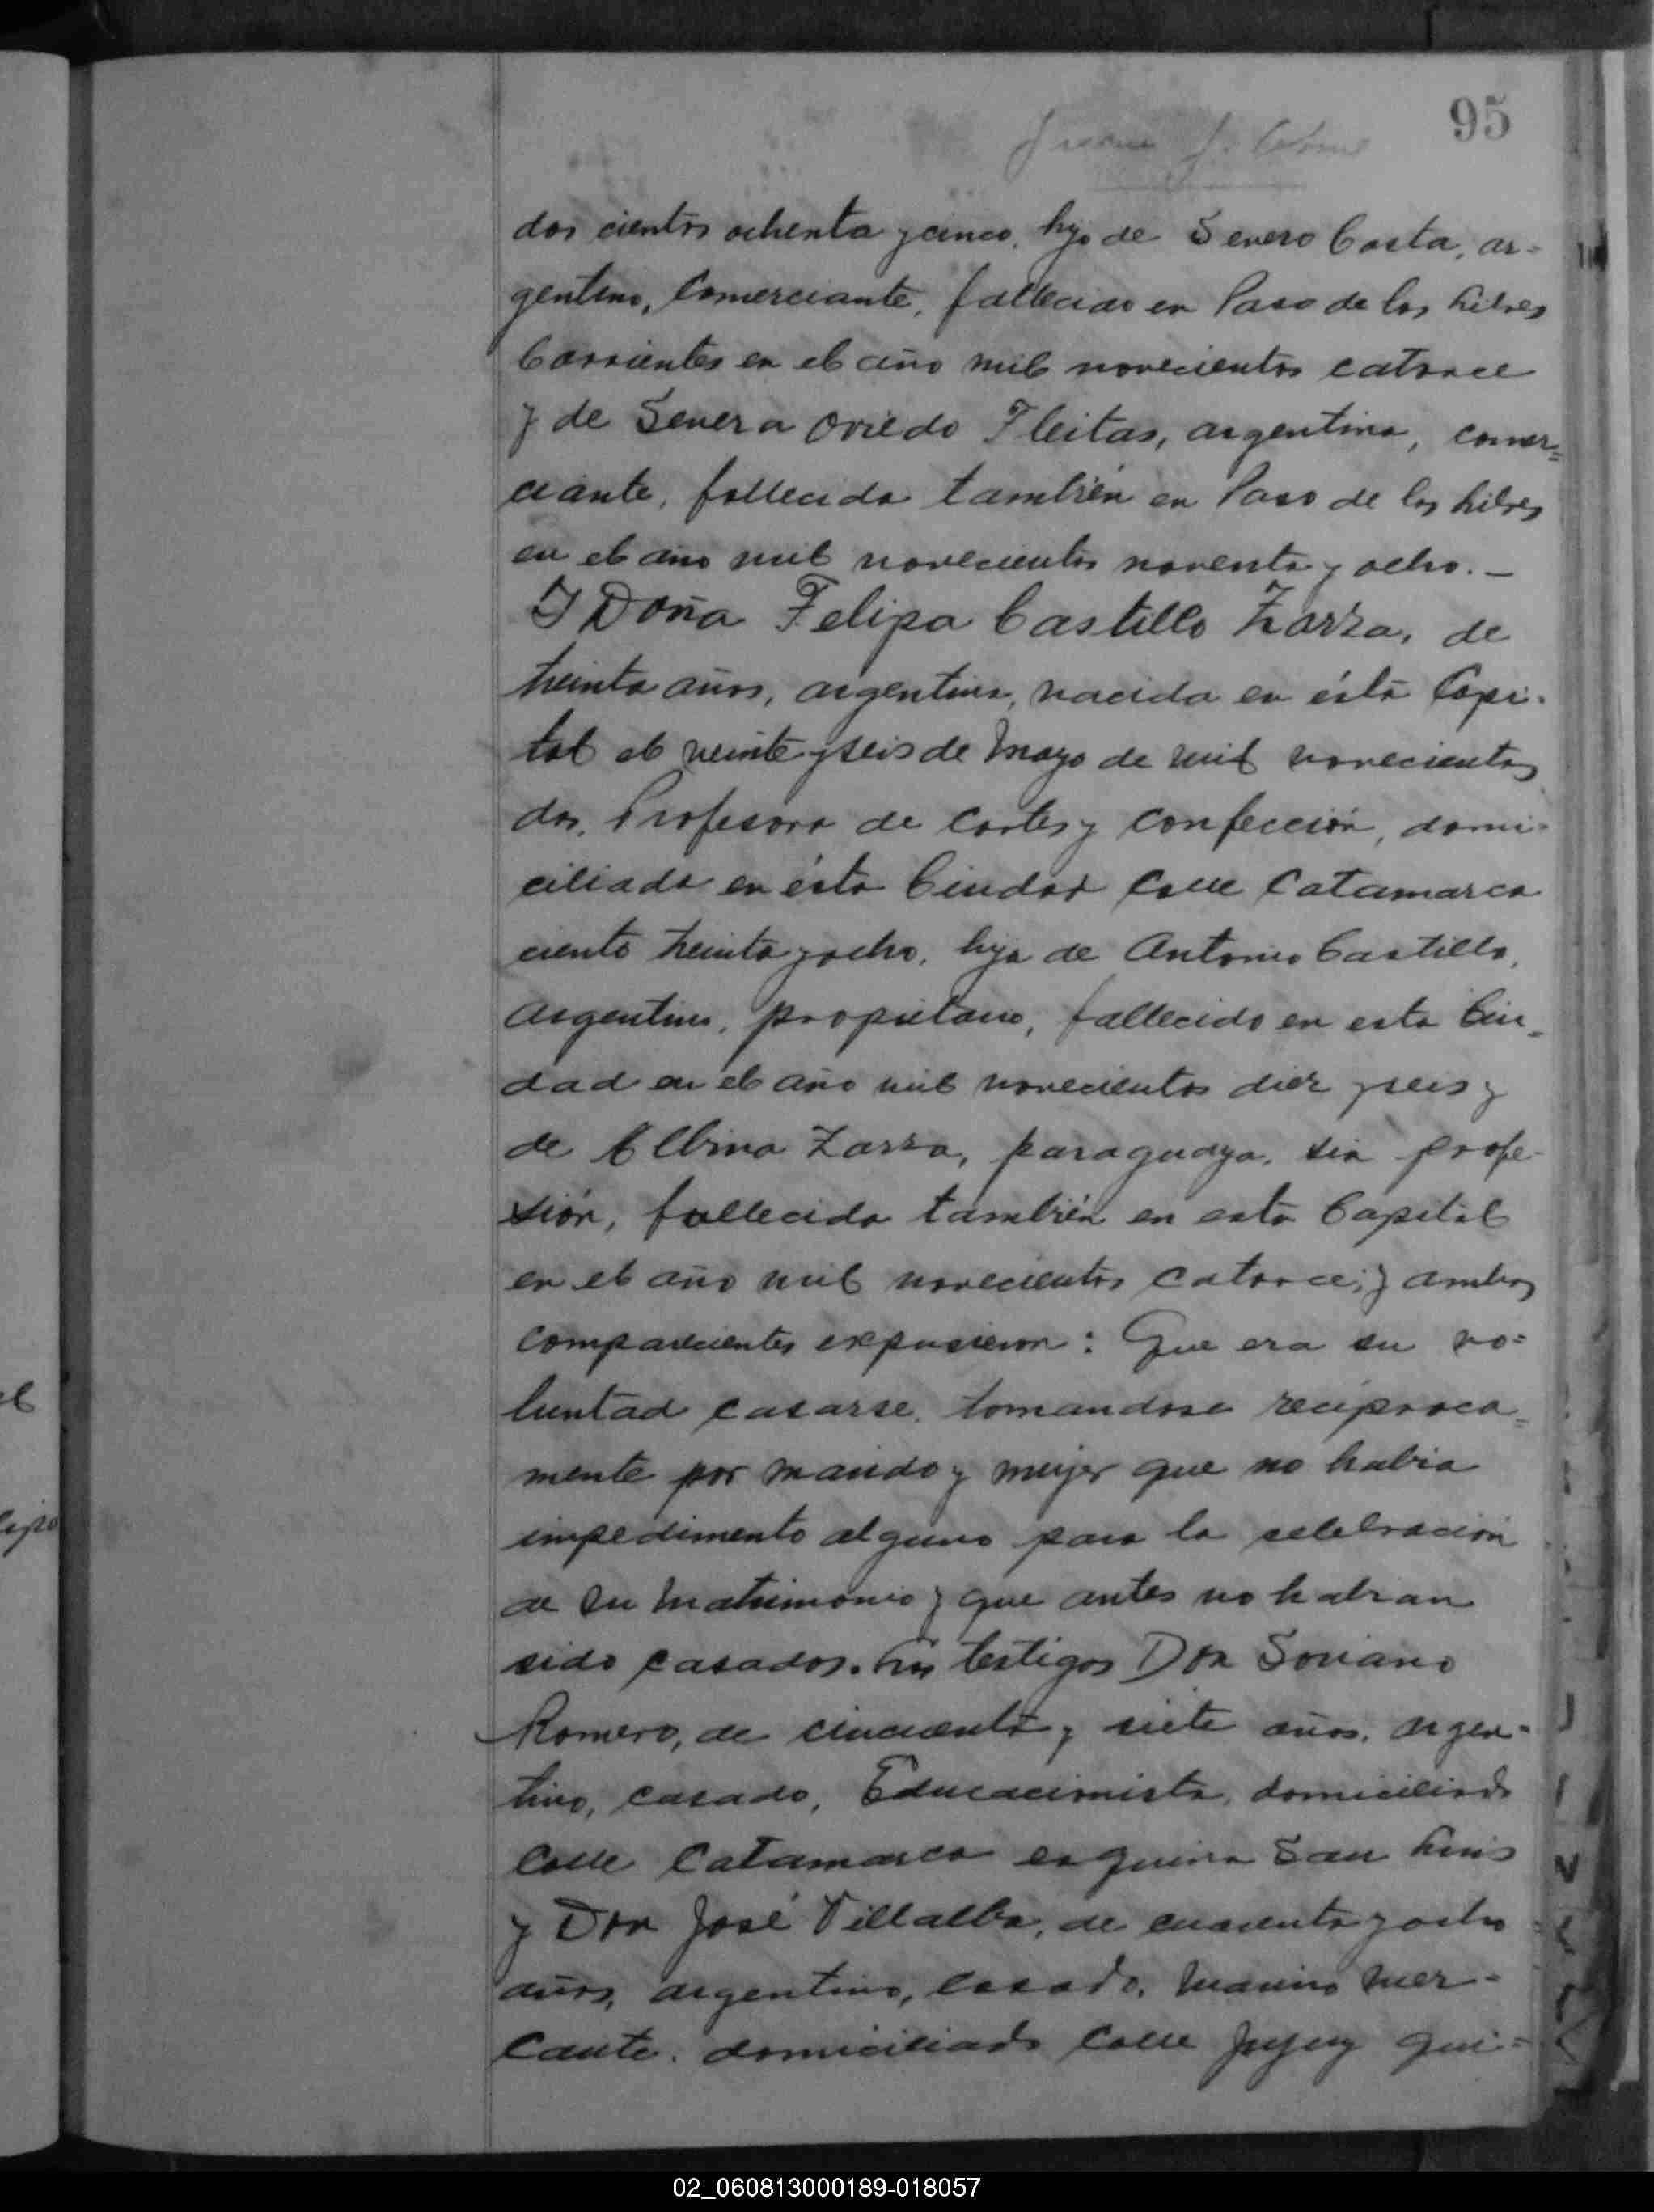 95
dos cientos ochenta y cinco, hijo de Severo Costa, ar=
gentino, Comerciante, fallecido en Paso de los Libres
Corrientes en el año mil novecientos catorce
y de Severa Oviedo Fleitas, argentina, comer=
ciante, fallecida también en Paso de los Libres
en el año mil novecientos noventa y ocho.—
Y Doña Felipa Castillo Zarza, de
treinta años, argentina, nacida en ésta Capi-
tal el veinte y seis de Mayo de mil novecientos
dos, Profesora de Cortes y confección, domi-
ciliada en ésta Ciudad calle Catamarca
ciento treinta y ocho, hija de Antonio Castillo,
Argentino, propietario, fallecido en esta Ciu=
dad en el año mil novecientos diez y seis y
de Albina Zarza, paraguaya, sin profe-
sión, fallecida también en esta Capital
en el año mil novecientos catorce; y ambos
comparecientes expusieron: Que era su vo=
luntad casarse, tomandose reciproca=
mente por marido y mujer que no habia
impedimento alguno para la celebración
de su matrimonio y que antes no habian
sido casados. Los testigos Don Soriano
Romero, de cincuenta y siete años, argen-
tino, casado, Educacionista, domiciliado
Calle Catamarca esquina San Luis
y Don José Villalba, de cuarenta y ocho
años, argentino, casado, Marino Mer-
cante, domiciliado Calle Jujuy qui=
02_060813000189-018057